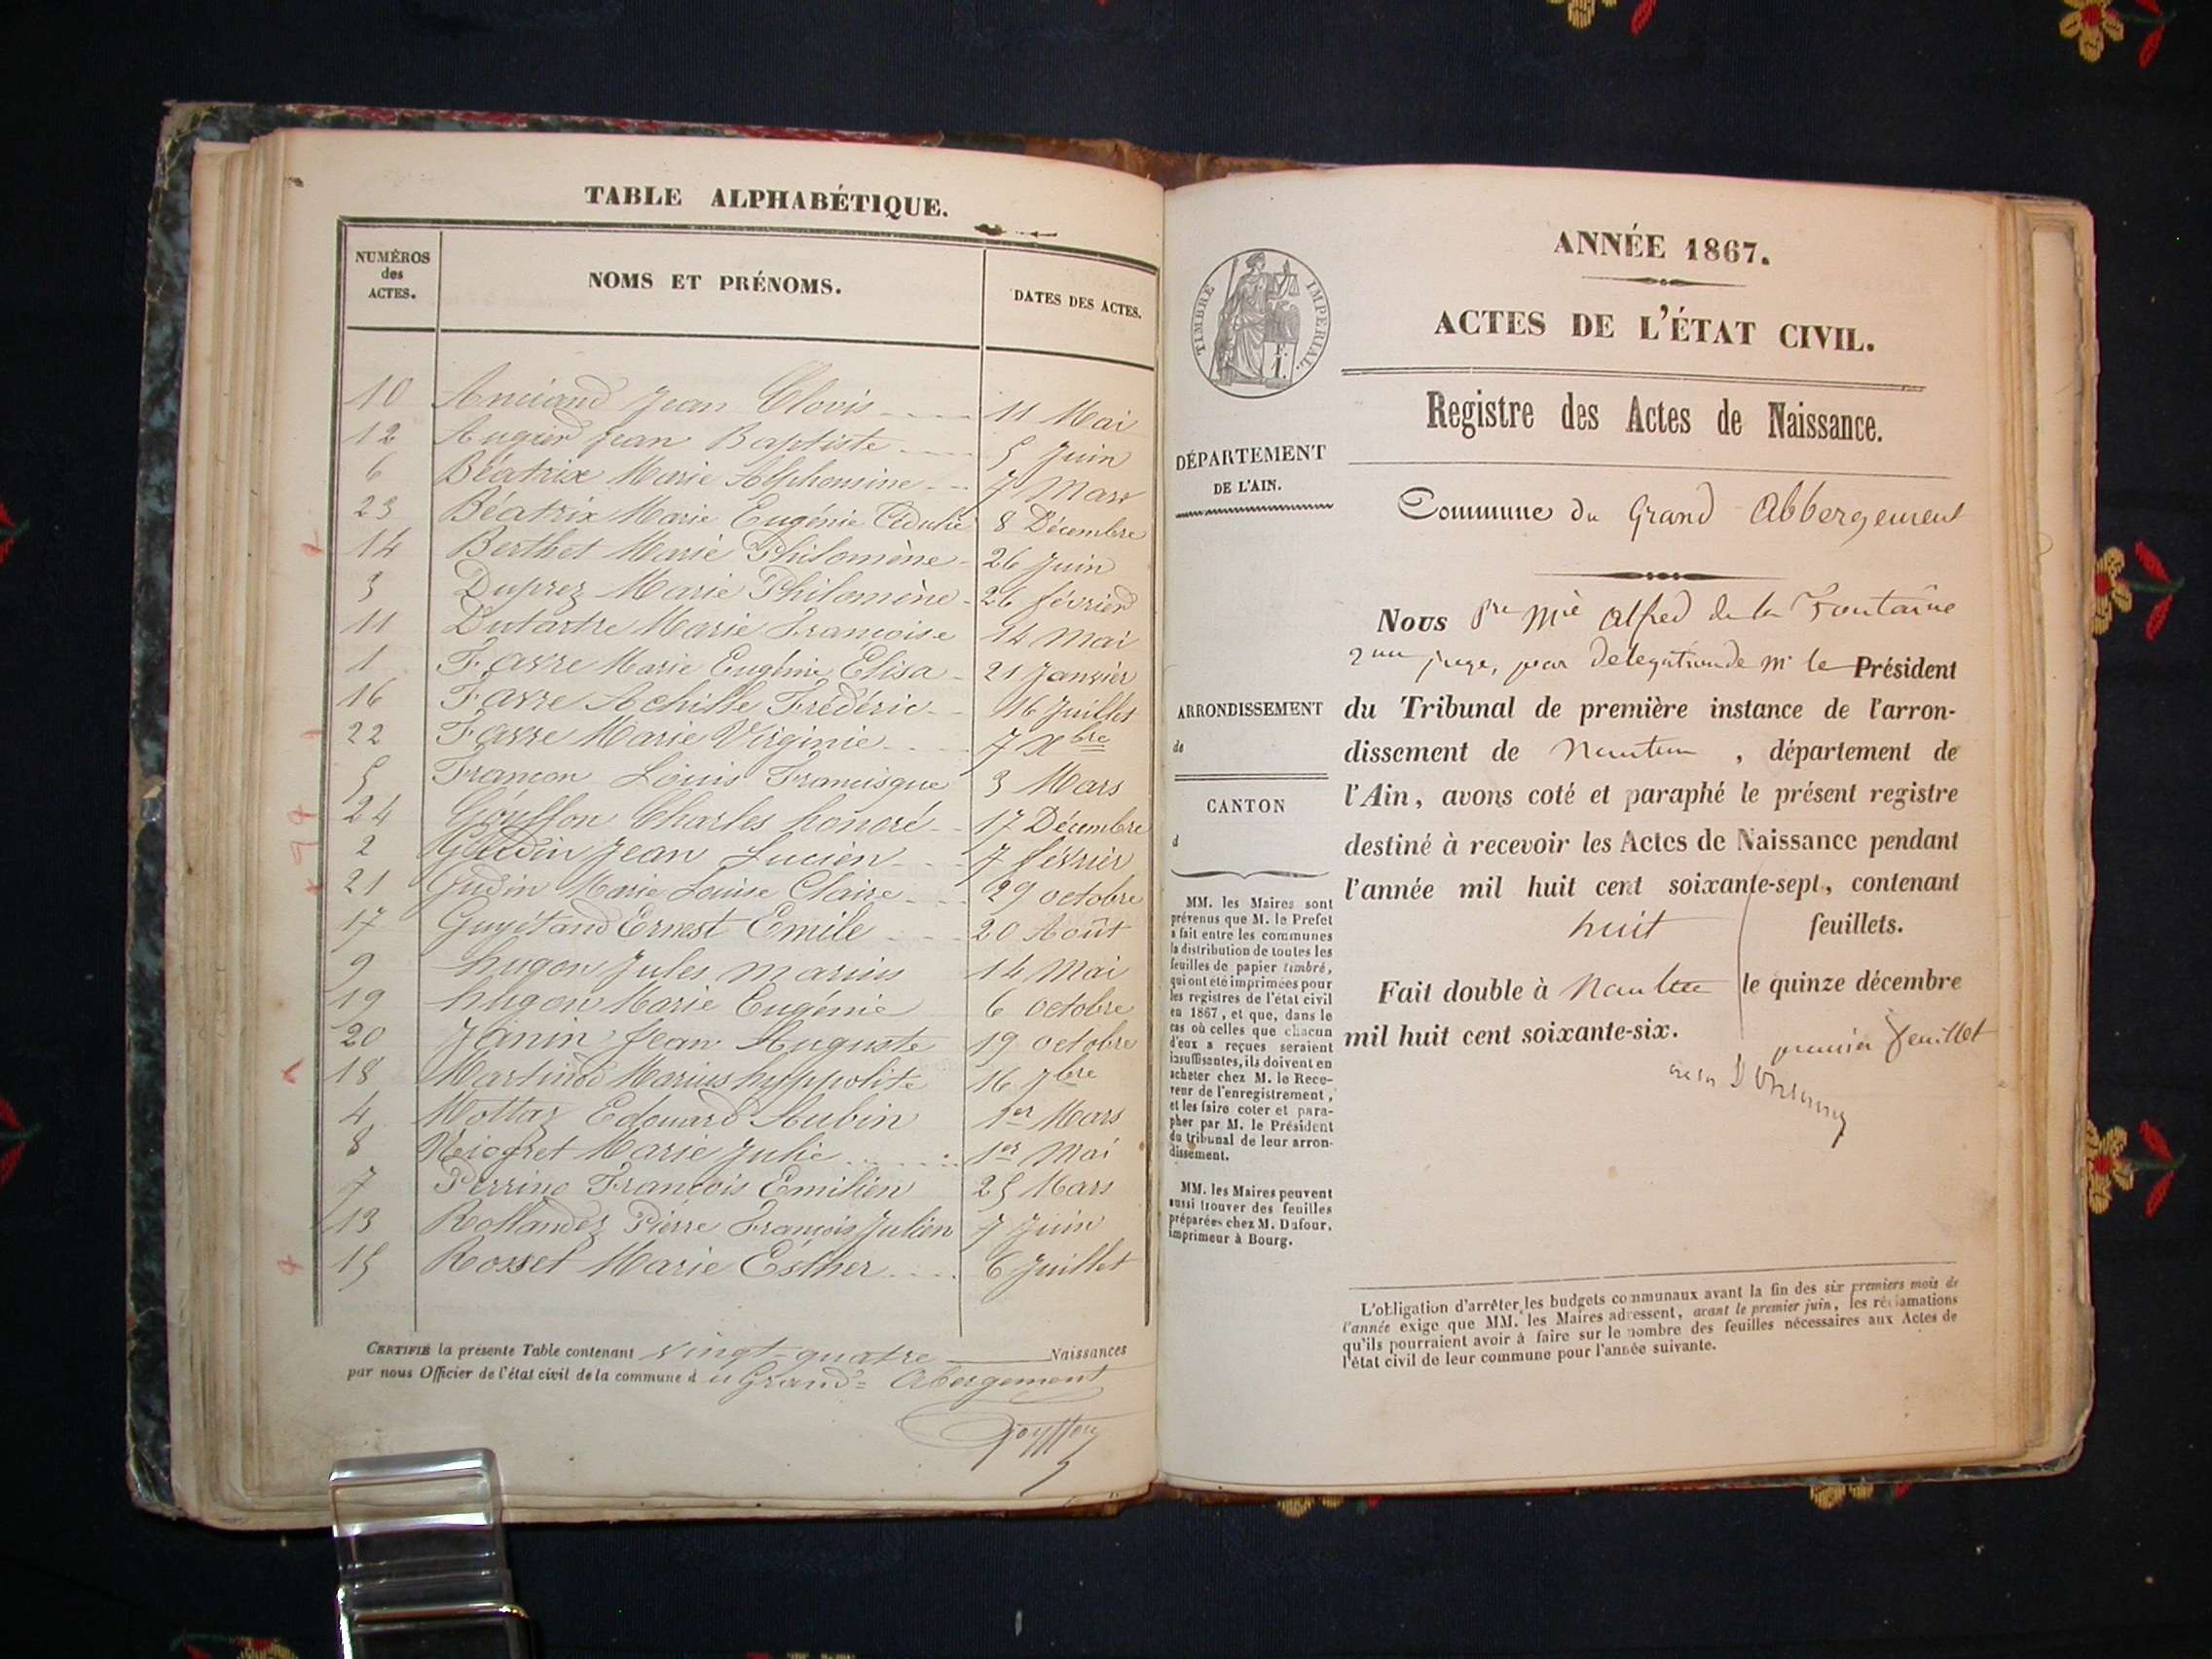 TABLE ALPHABÉTIQUE.
NUMÉROS
des
ACTES.
NOMS ET PRÉNOMS.
DATES DES ACTES.
10 Jean Clovis 11 Mai
12 Augier Jean Baptiste 5 Juin
6 Béatrix Marie Alphonsine 7 Mars
23 Béatrix Marie Eugénie 8 Décembre
14 Berthet Marie Philomène 26 Juin
3 Duprez Marie Philomène 26 février
11 Dutartre Marie Françoise 14 Mai
1 Favre Marie Eugénie Elisa 21 Janvier
16 Favre Achille Frédéric 16 Juillet
22 Favre Marie Virginie 7 Xbre
5 Françon Louis Francisque 3 Mars
24 Gouffon Charles honoré 17 Décembre
2 Gudin Jean Lucien 7 février
21 Gudin Marie Louise Claire 29 octobre
17 Guyétand Ernest Emile 20 Août
9 hugon Jules marius 14 mai
19 hugon Marie Eugénie 6 octobre
20 Janin Jean Auguste 19 octobre
18 Martinod Marius hyppolite 16 7bre
4 Mottaz Edouard Aubin 1er Mars
8 Niogret Marie Julie 1er Mai
7 François Emilien 25 Mars
13 Rollandez Pierre François Julien 7 Juin
15 Rosset Marie Esther 6 Juillet
CERTIFIÉ la présente Table contenant vingt-quatre Naissances
par nous Officier de l'état civil de la commune d u Grand-Abergement
Gouffon
ANNÉE 1867.
ACTES DE L'ÉTAT CIVIL.
TIMBRE IMPÉRIAL.
1 F.
Registre des Actes de Naissance.
DÉPARTEMENT
DE L'AIN.
Commune du Grand Abbergement
Nous Alfred de la Fontaine
juge, par delegation de Mr le Président
ARRONDISSEMENT
de
du Tribunal de première instance de l'arron-
dissement de Nantua, département de
CANTON
d
l'Ain, avons coté et paraphé le présent registre
destiné à recevoir les Actes de Naissance pendant
l'année mil huit cent soixante-sept, contenant
huit feuillets.
Fait double à Nantua le quinze décembre
mil huit cent soixante-six.
premier feuillet
MM. les Maires sont
prévenus que M. le Prefet
a fait entre les communes
la distribution de toutes les
feuilles de papier timbré,
qui ont été imprimées pour
les registres de l'état civil
en 1867, et que, dans le
cas où celles que chacun
d'eux a reçues seraient
insuffisantes, ils doivent en
acheter chez M. le Rece-
veur de l'enregistrement,
et les faire coter et para-
pher par M. le Président
du tribunal de leur arron-
dissement.
MM. les Maires peuvent
aussi trouver des feuilles
préparées chez M. Dufour,
imprimeur à Bourg.
L'obligation d'arrêter les budgets communaux avant la fin des six premiers mois de
l'année exige que MM. les Maires adressent, avant le premier juin, les réclamations
qu'ils pourraient avoir à faire sur le nombre des feuilles nécessaires aux Actes de
l'état civil de leur commune pour l'année suivante.